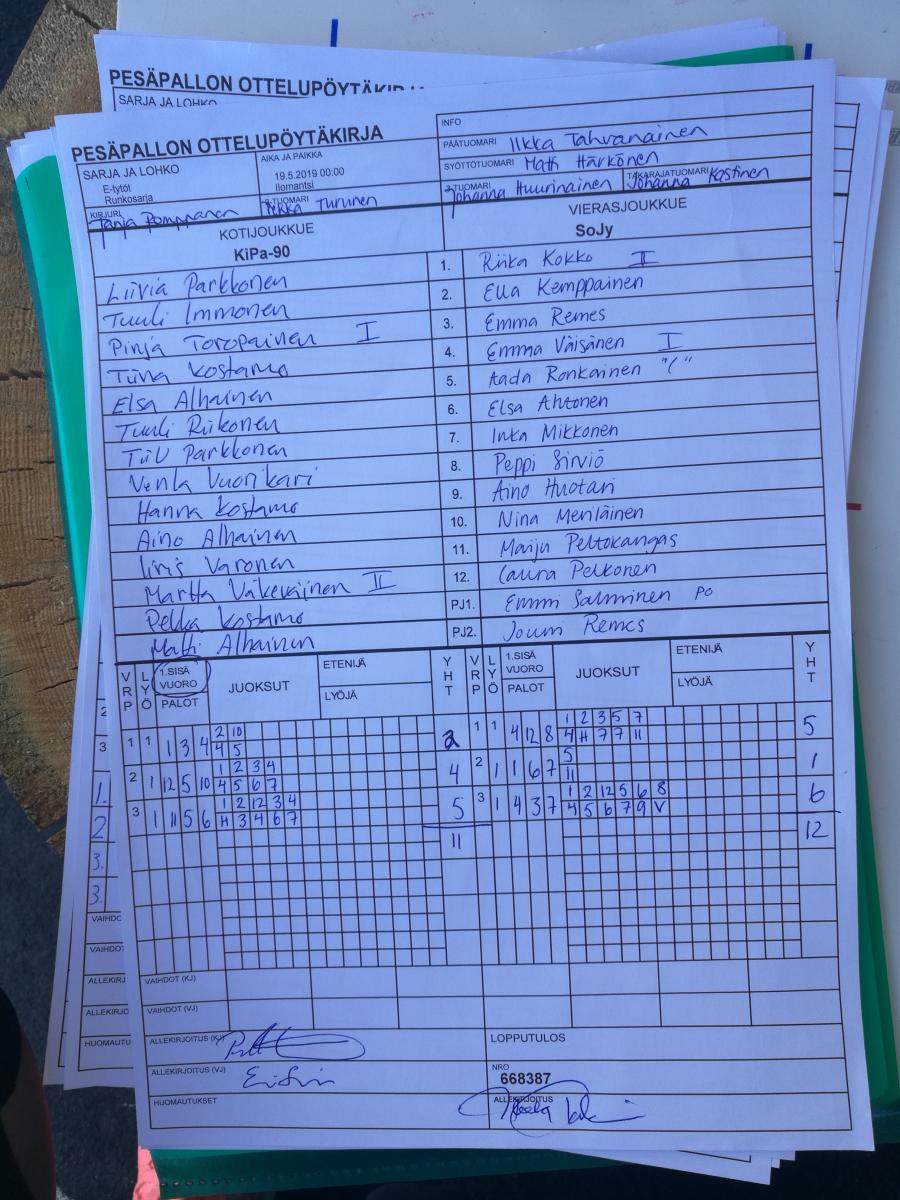 PESÄPALLON OTTELUPÖYTÄKIRJA
SARJA JA LOHKO
PESÄPALLON OTTELUPÖYTÄKIRJA
INFO
PÄÄTUOMARI Ilkka Tahvanainen
SYÖTTÖTUOMARI Matti Härkönen
SARJA JA LOHKO
E-tytöt
Runkosarja
AIKA JA PAIKKA
19.5.2019 00:00
Ilomantsi
TUOMARI Johanna Huurinainen
TAKARAJATUOMARI Johanna Kostinen
KIRJURI Tanja Romppanen
2-TUOMARI Pekka Turunen
KOTIJOUKKUE
KiPa-90
VIERASJOUKKUE
SoJy
Liivia Parkkonen 1. Riika Kokko II
Tuuli Immonen 2. Ella Kemppainen
Pinja Toropainen I 3. Emma Remes
Tiina Kostamo 4. Emma Väisänen I
Elsa Alhainen 5. Aada Ronkainen "("
Tuuli Riikonen 6. Elsa Ahtonen
Tiiu Parkkonen 7. Inka Mikkonen
Venla Vuorikari 8. Peppi Sirviö
Hanna Kostamo 9. Aino Huotari
Aino Alhainen 10. Nina Meriläinen
Iiris Varonen 11. Maiju Peltokangas
Martta Väkeväinen II 12. Laura Pelkonen
Pekka Kostamo PJ1. Emmi Salminen PO
Matti Alhainen PJ2. Jouni Remes
VRP LYÖ 1.SISÄ VUORO PALOT JUOKSUT ETENIJÄ LYÖJÄ YHT VRP LYÖ 1.SISÄ VUORO PALOT JUOKSUT ETENIJÄ LYÖJÄ YHT
2 10 1 2 3 5 7
1 1 1 3 4 4 5 2 1 1 4 12 8 4 H 7 7 11 5
1 2 3 4 5
2 1 12 5 10 4 5 6 7 4 2 1 1 6 7 11 1
1 2 12 3 4 1 2 12 5 6 8
3 1 11 5 6 H 3 4 6 7 5 3 1 4 3 7 4 5 6 7 9 V 6
11 12
VAIHDOT (KJ)
VAIHDOT (VJ)
ALLEKIRJOITUS (KJ)
LOPPUTULOS
ALLEKIRJOITUS (VJ)
NRO
668387
HUOMAUTUKSET
ALLEKIRJOITUS
2
3
1.
2
3.
3.
VAIHDO
VAIHDOT
ALLEKIRJ
ALLEKIRJO
HUOMAUTU